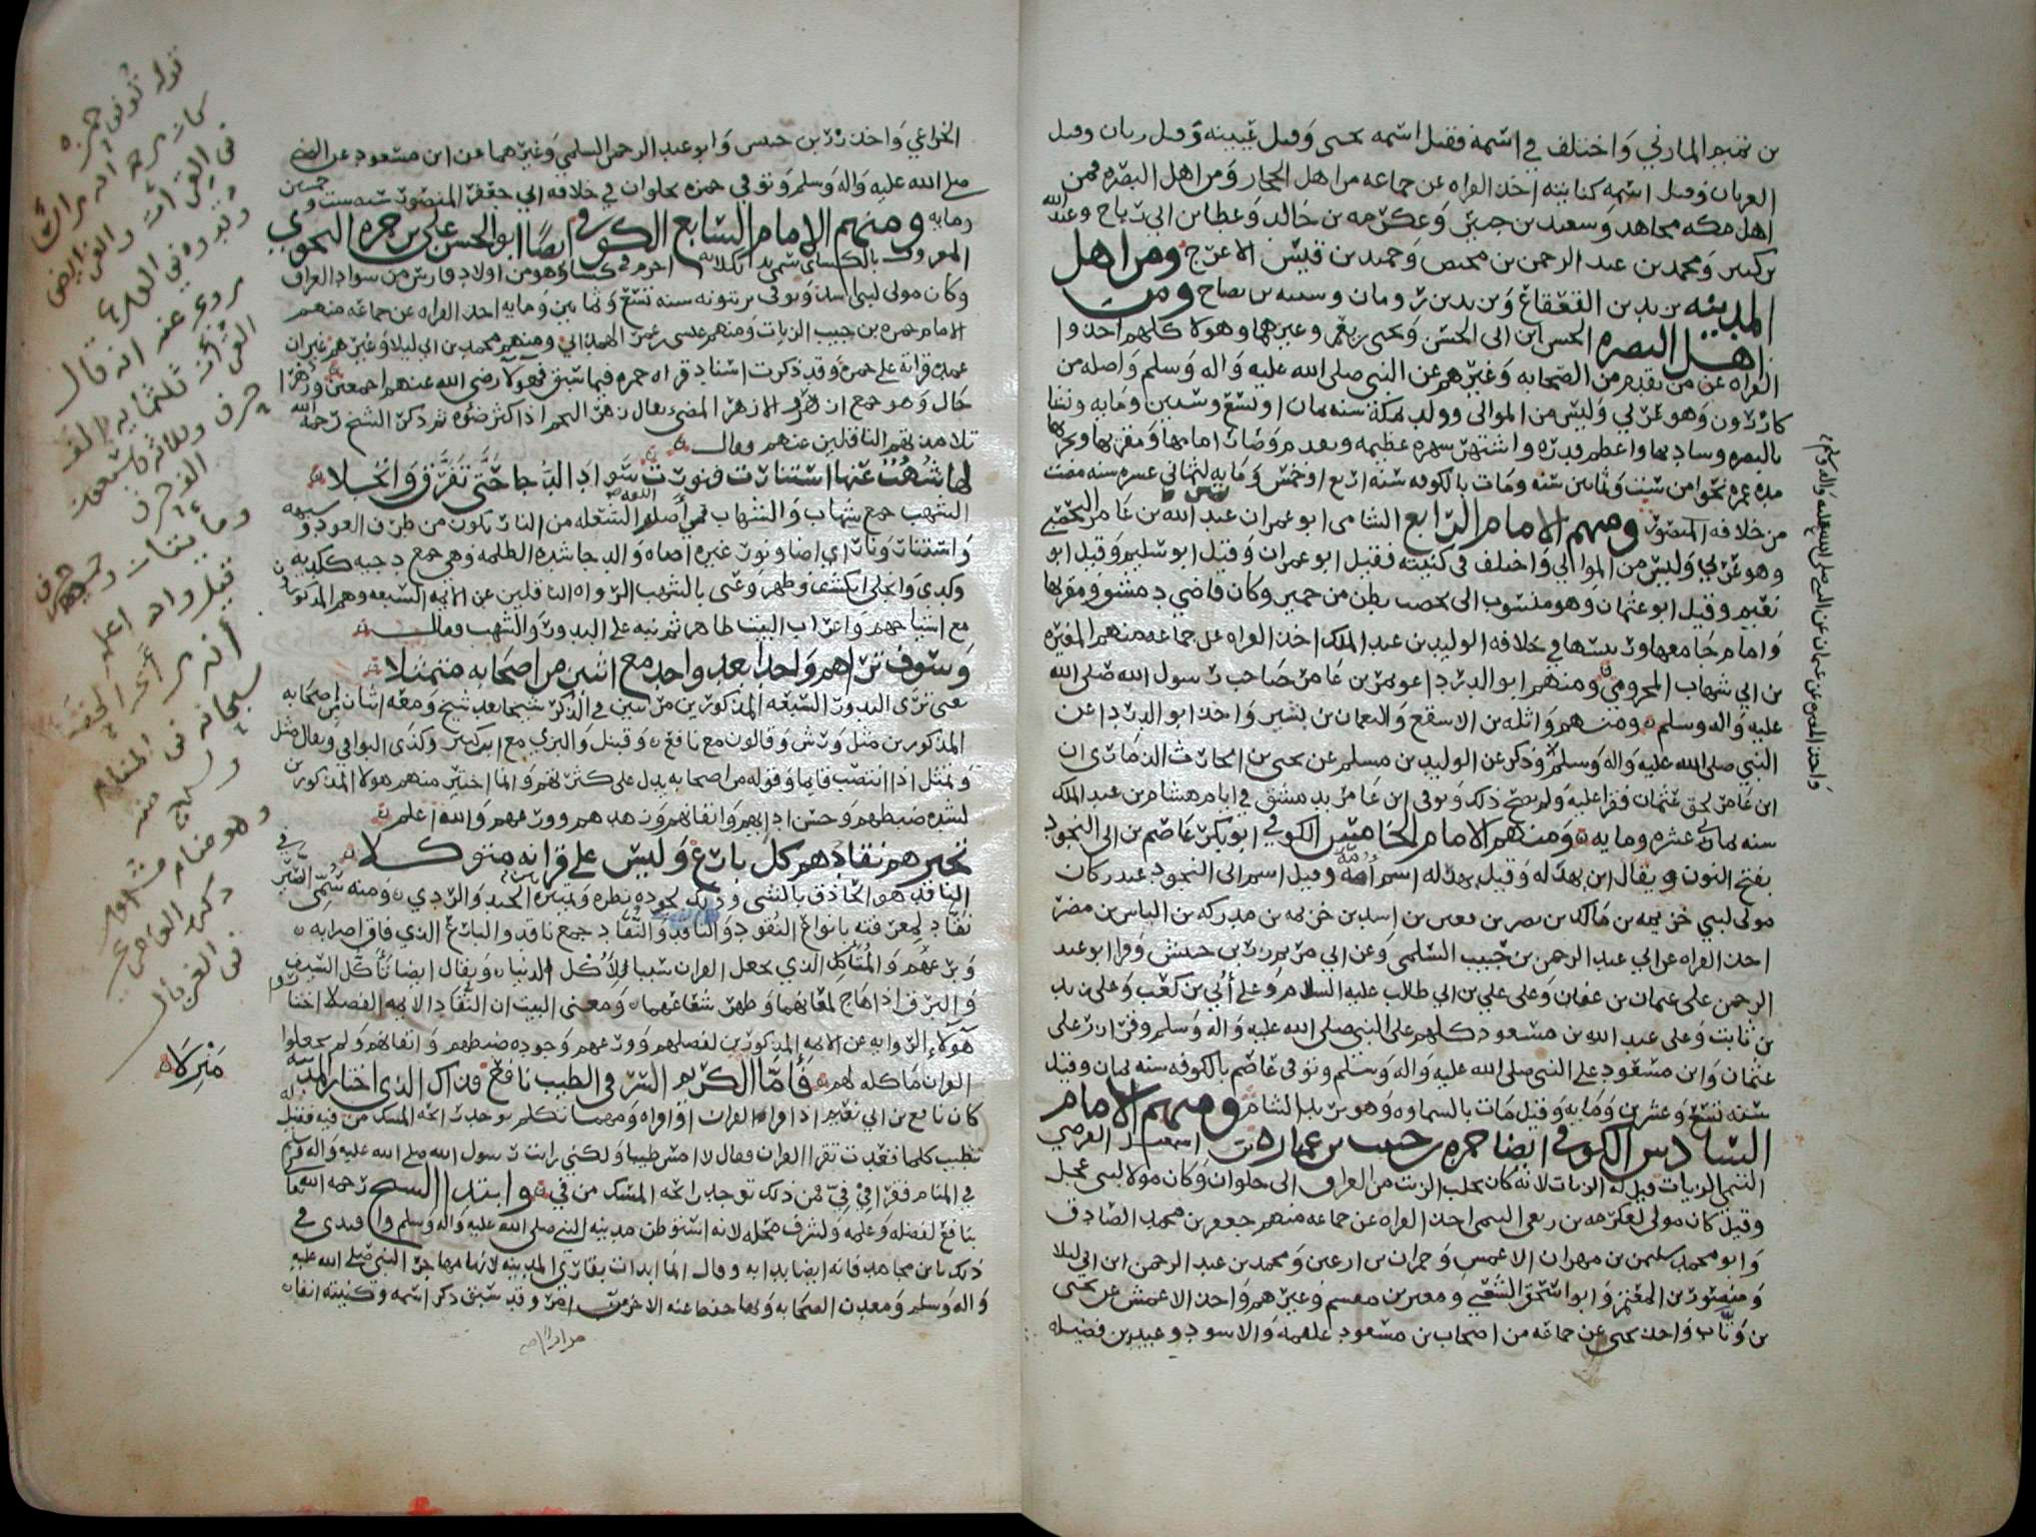 بن نعيم المازني واختلف في اسمه فقيل اسمه يحيى وقيل عيينه وقيل ربان وقيل
العريان وقيل اسمه كنايته اخذ القراه عن جماعه من اهل الحجاز ومن اهل البصره فمن
اهل مكه مجاهد وسعيد بن جبير وعكرمه بن خالد وعطا بن ابي رباح وعبد الله
بن كثير ومحمد بن عبد الرحمن بن محيصن وحميد بن قيس الاعرج ومن اهل
المدينه يزيد بن القعقاع ويزيد بن رومان وشيبه بن نصاح ومن
اهل البصره الحسن ابن ابي الحسن ويحيى بن يعمر وغيرهما وهولا كلهم اخذوا
القراه عن من تقدم من الصحابه وغيرهم عن النبي صلى الله عليه واله وسلم واصله من
كازرون وهو عربي وليس من الموالي وولد بمكة سنه ثمان او تسع وستين ومايه ونشا
بالبصره وساد بها واعظم قدره واشتهر شهره عظيمه وبعدم وصار امامها ومقريها
مده عمره نحوا من ست وثمانين سنه ومات بالكوفه سنه اربع او خمس ومايه لثماني عشره سنه مضت
من خلافه المنصور ومنهم الامام الرابع الشامي ابو عمران عبد الله بن عامر اليحصبي
وهو عربي وليس من الموالي واختلف في كنيته فقيل ابو عمران وقيل ابو سليم وقيل ابو
نعيم وقيل ابو عثمان وهو منسوب الى يحصب بطن من حمير وكان قاضي دمشق ومقريها
وامام جامعها ورئيسها في خلافه الوليد بن عبد الملك اخذ القراه عن جماعه منهم المغيره
بن ابي شهاب المخزومي ومنهم ابو الدردا عويمر بن عامر صاحب رسول الله صلى الله
عليه واله وسلم ومنهم واثله بن الاسقع والنعمان بن بشير واخذ ابو الدردا عن
النبي صلى الله عليه واله وسلم وذكر عن الوليد بن مسلم عن يحيى بن الحارث الذماري ان
ابن عامر لحق عثمان فقرا عليه ولم يصح ذلك وتوفي ابن عامر بدمشق في ايام هشام بن عبد الملك
سنه ثماني عشره ومايه ومنهم الامام الخامس الكوفي ابو بكر عاصم بن ابي النجود
بفتح النون ويقال ابن بهدله وقيل بهدله اسم امه وقيل اسم ابي النجود عبد وكان
مولى لبني خزيمه بن مالك بن نصر بن قعين بن اسد بن خزيمه بن مدركه بن الياس بن مضر
اخذ القراه عن ابي عبد الرحمن بن حبيب السلمي وعن ابي مريم زر بن حبيش وقرا ابو عبد
الرحمن على عثمان بن عفان وعلى علي بن ابي طالب عليه السلام وعلى أُبي بن كعب وعلى زيد
بن ثابت وعلى عبد الله بن مسعود كلهم على النبي صلى الله عليه واله وسلم وقرا زر على
عثمان وابن مسعود على النبي صلى الله عليه واله وسلم وتوفي عاصم بالكوفه سنه ثمان وقيل
سنه تسع وعشرين ومايه وقيل مات بالسماوه وهو يريد الشام ومنهم الامام
السادس الكوفي ايضا حمزه بن حبيب بن عماره بن اسمعيل الفرضي
التيمي الزيات قيل له الزيات لانه كان يجلب الزيت من العراق الى حلوان وكان مولا لبني عجل
وقيل كان مولى لعكرمه بن ربعي التيمي اخذ القراه عن جماعه منهم جعفر بن محمد الصادق
وابو محمد سليمن بن مهران الاعمش وحمران بن اعين ومحمد بن عبد الرحمن ابن ابي ليلا
ومنصور بن المعتمر وابو اسحق الشعبي ومغيره بن مقسم وغيرهم واخذ الاعمش عن يحيى
بن وثاب واخذ يحيى عن جماعه من اصحاب بن مسعود علقمه والاسود وعبيد بن فضيله
واخذ المغيره عن عثمان عن النبي صلى الله عليه واله وسلم
الخزاعي واخذ زر بن حبيش وابو عبد الرحمن السلمي وغيرهما عن ابن مسعود عن النبي
صلى الله عليه واله وسلم وتوفي حمزه بحلوان في خلافه ابي جعفر المنصور سنه ست وخمسين
ومايه ومنهم الامام السابع الكوفي ايضًا ابو الحسن علي بن حمزه النحوي
المعروف بالكساي سمي بذلك لانه احرم في كسا وهو من اولاد فارس من سواد العراق
وكان مولى لبني اسد وتوفي برنبويه سنه تسع وثمانين ومايه اخذ القراه عن جماعه منهم
الامام حمزه بن حبيب الزيات ومنهم عيسى بن عمر الهمداني ومنهم محمد بن ابي ليلا وغيرهم غير ان
عمده قراته على حمزه وقد ذكرت اسناد قراه حمزه فيما سبق فهولا رضي الله عنهم اجمعين وزهرا
حال وهو جمع ازهر الازهر المضي يقال زهر النجم اذا كثر ضوه ثم ذكر الشيخ رحمه الله
تلامذتهم الناقلين عنهم وقال
لها شُهُبٌ عنها استنارت فنورت سواد الدجا حتى تفرق وانجلا
الشهب جمع شهاب والشهاب في أصله اللغه الشعله من النار تكون من طرف العود
واستنار ونار اي اضا ونور غيره اضاه والدجا شده الظلمه وهي جمع دجيه ككديه
وكدي وانجلى انكشف وظهر وعنى بالشهب الرواه الناقلين عن الايمه السبعه وهم المذكورون
مع اشياخهم واعراب البيت ظاهر ثم نبه على البدور والشهب فقال
وسوف تراهم واحدا بعد واحد مع اثنين من اصحابه متمثلا
يعني ترى البدور السبعه المذكورين مرتبين في الذكر شيخا بعد شيخ ومعه اثنان من اصحابه
المذكورين مثل ورش وقالون مع نافع وقنبل والبزي مع ابن كثير وكذى البواقي ويقال مثل
وتمثل اذا انتصب قايما وقوله من اصحابه يدل على كثرتهم وانما اختير منهم هولا المذكورين
لشده ضبطهم وحسن ادابهم واتقانهم وزهدهم وورعهم والله اعلم
تخيرهم نقادهم كل بارع وليس على قرانه متوكلا
الناقد هو الحاذق بالشي وذلك لجوده نظره وتمييزه الجيد والردي ومنه سمي
نقاد لمعرفته بانواع النقود والناقد والنقاد جمع ناقد والبارع الذي فاق اضرابه
وبرعهم والمتاكل الذي يجعل القران سببا للأكل الدنيا ويقال ايضا تأكل السيف
والبرق اذا هاج لمعانهما وظهر شعاعهما ومعنى البيت ان النقاد الايمه الفضلا اختاروا
هولاء الروايه عن الايمه المذكورين لفضلهم وورعهم وجوده ضبطهم واتقانهم ولم يجعلوا
القران ماكله لهم فأما الكريم السر في الطيب نافع فذاك الذي اختار المدينه
كان نافع بن ابي نعيم اذا قرا القران او اقراه ومهما تكلم يوجد رايحه المسك من فيه فقيل له
تطيب كلما قعدت تقرا القران فقال لا امس طيبا ولكني رايت رسول الله صلى الله عليه واله وسلم
في المنام فقرا في فيّ فمن ذلك توجد رايحه المسك من في وابتدا الشيخ رحمه الله
بنافع لفضله وعلمه ولشرف محله لانه استوطن مدينه النبي صلى الله عليه واله وسلم واقتدى في
ذلك بابن مجاهد فانه ايضا بدا به وقال انما ابدات بقارئ المدينه لانها مهاجر النبي صلى الله عليه
واله وسلم ومعدن الصحابه وبها حفظ عنه الاخر من امره وقد سبق ذكر اسمه وكنيته انفا
قوله توفي حمزه
كان رحمه الله راسا
في القرات والفرايض
روى عنه انه قال
سبحانه في المنام
وهو منام مشهور
منزلا